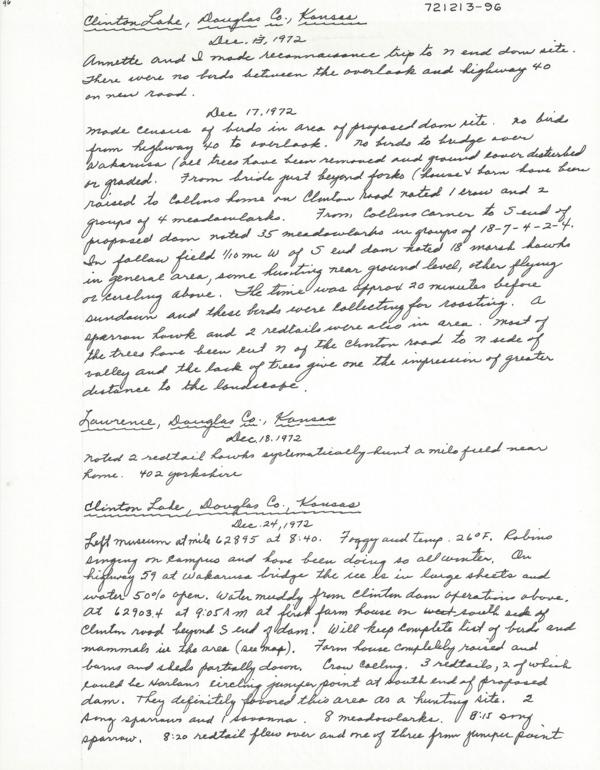 96
721213-96
Clinton Lake, Douglas Co., Kansas
Dec. 13, 1972
Annette and I made reconnaissance trip to N end dam site.
There were no birds between the overlook and highway 40
on new road.
Dec 17, 1972
Made census of birds in area of proposed dam site. no birds
from highway 40 to overlook. No birds to bridge over
Wakarusa (all trees have been removed and ground cover disturbed
or graded. From bride just beyond forks (house & barn have been
raised to Collins home on Clinton road noted 1 crow and 2
groups of 4 meadowlarks. From Collins corner to S end of
proposed dam noted 35 meadowlarks in groups of 18-7-4-2-4.
In fallow field 1/10 mi W of S end dam noted 18 marsh hawks
in general area, some hunting near ground level, other flying
or circling above. The time was approx 20 minutes before
sundown and these birds were collecting for roosting. A
sparrow hawk and 2 redtails were also in area. Most of
the trees have been cut N of the Clinton road to N side of
valley and the lack of trees give one the impression of greater
distance to the landscape.
Lawrence, Douglas Co., Kansas
Dec. 18, 1972
Noted 2 redtail hawks systematically hunt a milo field near
home. 402 Yorkshire
Clinton Lake, Douglas Co., Kansas
Dec. 24, 1972
Left museum at mile 62895 at 8:40. Foggy and temp. 26°F. Robins
singing on campus and have been doing so all winter. On
highway 59 at Wakarusa bridge the ice is in large sheets and
water 50% open. Water muddy from Clinton dam operation above.
At 62903.4 at 9:05 AM at first farm house on west south side of
Clinton road beyond S end of dam. Will keep complete list of birds and
mammals in the area (see map). Farm house completely raised and
barns and sheds partially down. Crow calling. 3 redtails, 2 of which
could be Harlans circling juniper point at south end of proposed
dam. They definitely favored this area as a hunting site. 2
song sparrows and 1 savanna. 8 meadowlarks. 8:15 song
sparrow. 8:20 redtail flew over and one of three from juniper point